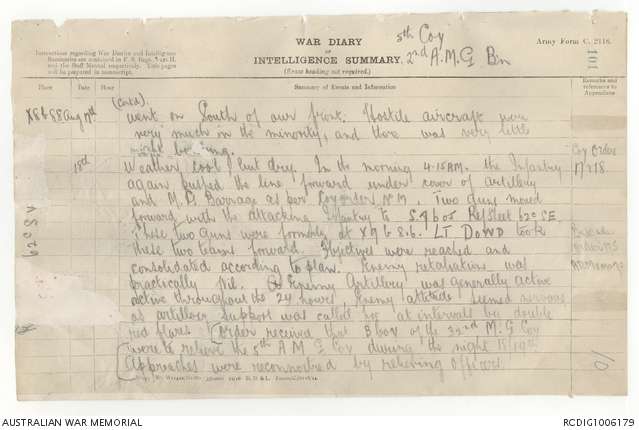 WAR DIARY
or
INTELLIGENCE SUMMARY.
(Erase heading not required.)
5th Coy
2nd A.M.G Bn
Army Form C. 2118.
101
Instructions regarding War Diaries and Intelligence
Summaries are contained in F. S. Regs., Part II.
and the Staff Manual respectively. Title pages
will be prepared in manuscript.
Place
Date
Hour
Summary of Events and Information
Remarks and
references to
Appendices
(Contd.)
X9b88 Aug 17th went on South of our front. Hostile aircraft were
very much in the minority, and there was very little
night bombing.
18th Weather cool but dry. In the morning 4-15 A.M. the Infantry
again pushed the line forward under cover of Artillery
and M.G. Barrage as per Coy order No. Two guns moved
forward with the attacking Infantry to Ref Sheet 62D SE.
These two guns were formerly at X9b8.6. LT DOWD took
these two teams forward. Objectives were reached and
consolidated according to plan. Enemy retaliations was
practically nil. Enemy Artillery was generally active
active throughout the 24 hours, Enemy attitude seemed nervous
as artillery support was called for at intervals by double
red flares. Order received that B Coy of the 32nd M.G Coy
were to relieve the 5th A M G Coy during the night 18/19th
Approaches were reconnoitred by relieving Officers.
Coy Order
AUSTRALIAN WAR MEMORIAL
RCDIG1006179